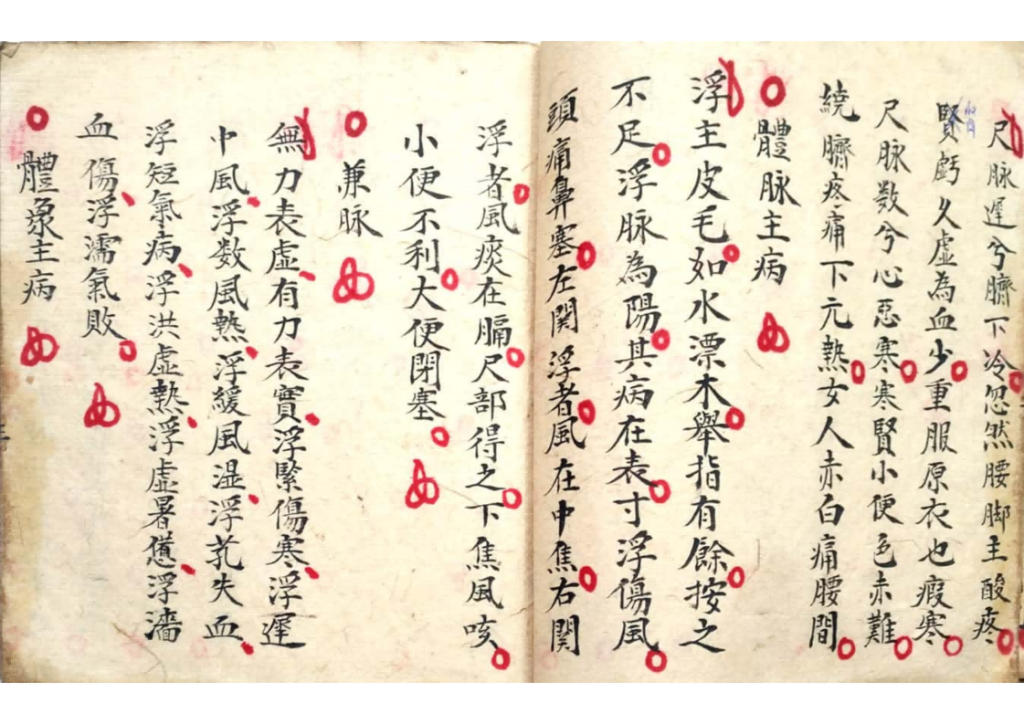 尺脉遲兮臍下冷忽然腰脚主酸疼
賢虧久虚為血少重服原衣也瘕寒
尺脉数兮心恶寒寒賢小便色赤難
繞臍疼痛下元熱女人赤白痛腰間
體脉主病
浮主皮毛如水漂木舉指有餘按之
不足浮脉為陽其病在表寸浮傷風
頭痛鼻塞左関浮者風在中焦右関
浮者風痰在膈尺部得之下焦風咳
小便不利大便閉塞
兼脉
無力表虚有力表實浮緊傷寒浮遲
中風浮数風熱浮緩風湿浮芤失血
浮短氣病浮洪虚熱浮虚暑憊浮濇
血傷浮濡氣敗
體象主病